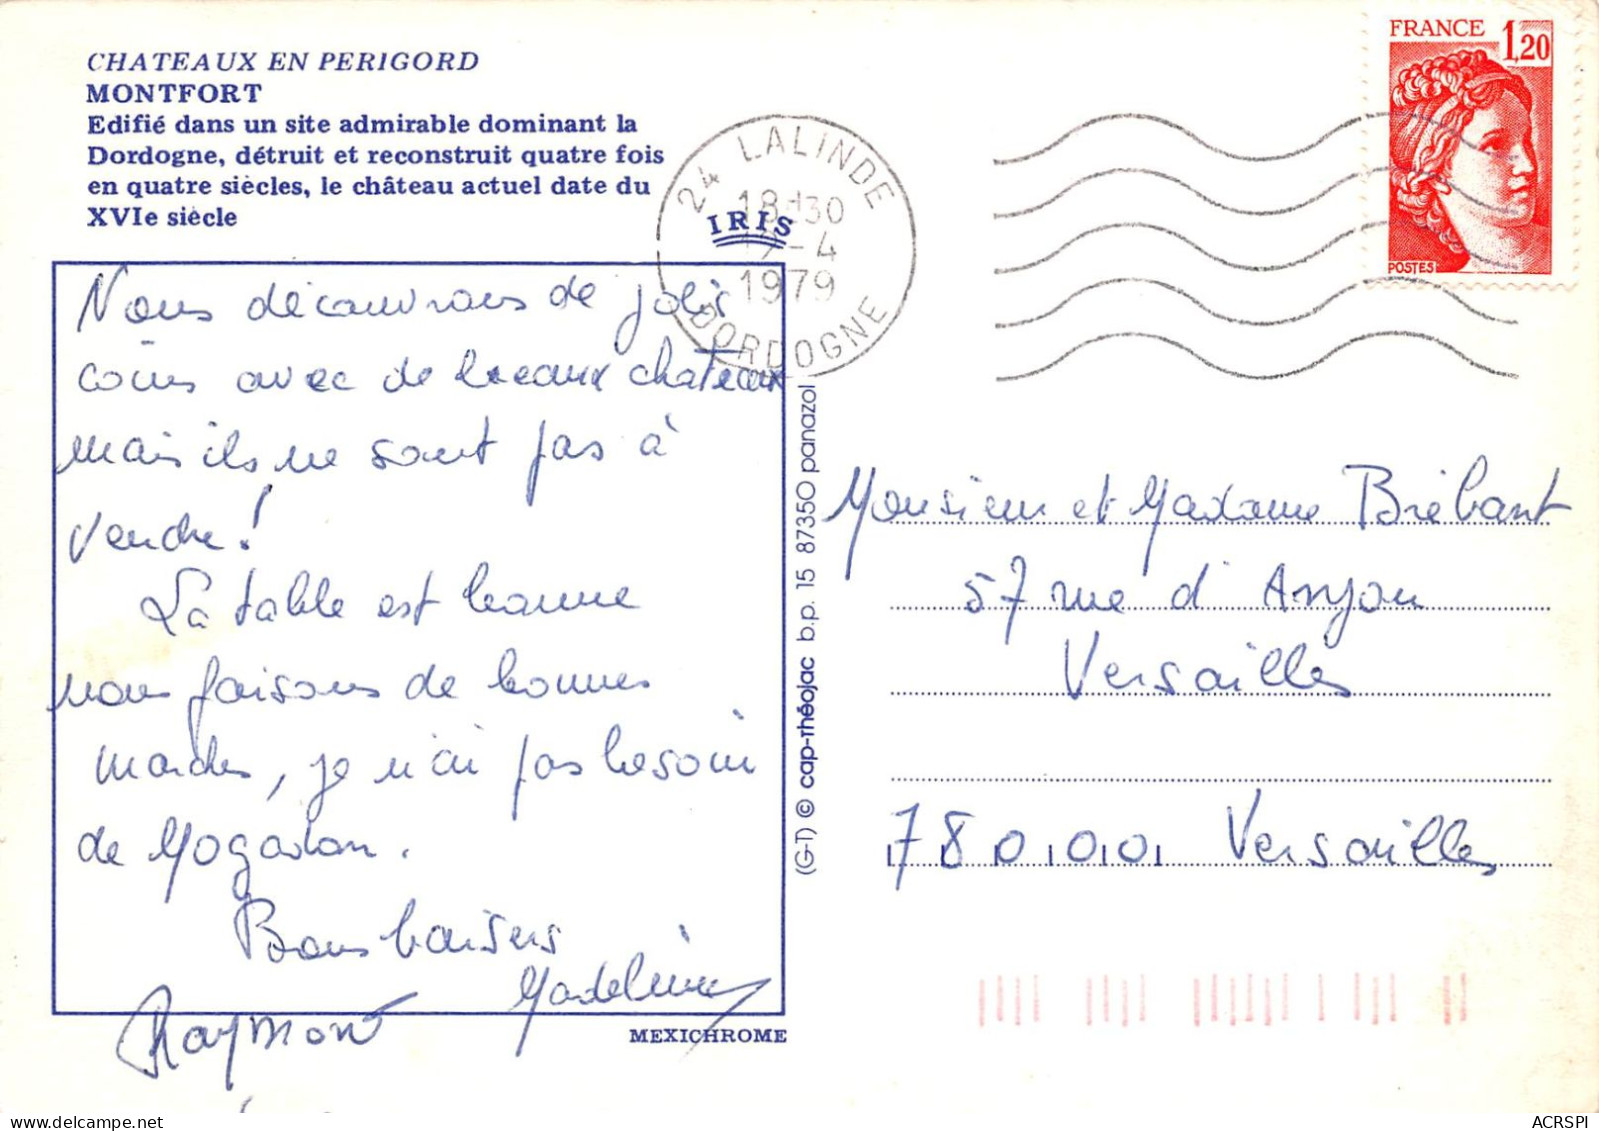 CHATEAUX EN PERIGORD
MONTFORT
Edifié dans un site admirable dominant la
Dordogne, détruit et reconstruit quatre fois
en quatre siècles, le château actuel date du
XVIe siècle
IRIS
24 LALINDE
18H30
-4
1979
DORDOGNE
FRANCE 1,20
POSTES
Nous découvrons de jolis
coins avec de beaux chateaux
mais ils ne sont pas à
vendre!
La table est bonne
nous faisons de bonnes
marches, je n'ai pas besoin
de Mogadon.
Bons baisers
Madeleine
Raymond
MEXICHROME
(G-T) © cap-théojac b.p. 15 87350 panazol
Monsieur et Madame Brébant
57 rue d'Anjou
Versailles
78000 Versailles
ACRSPI